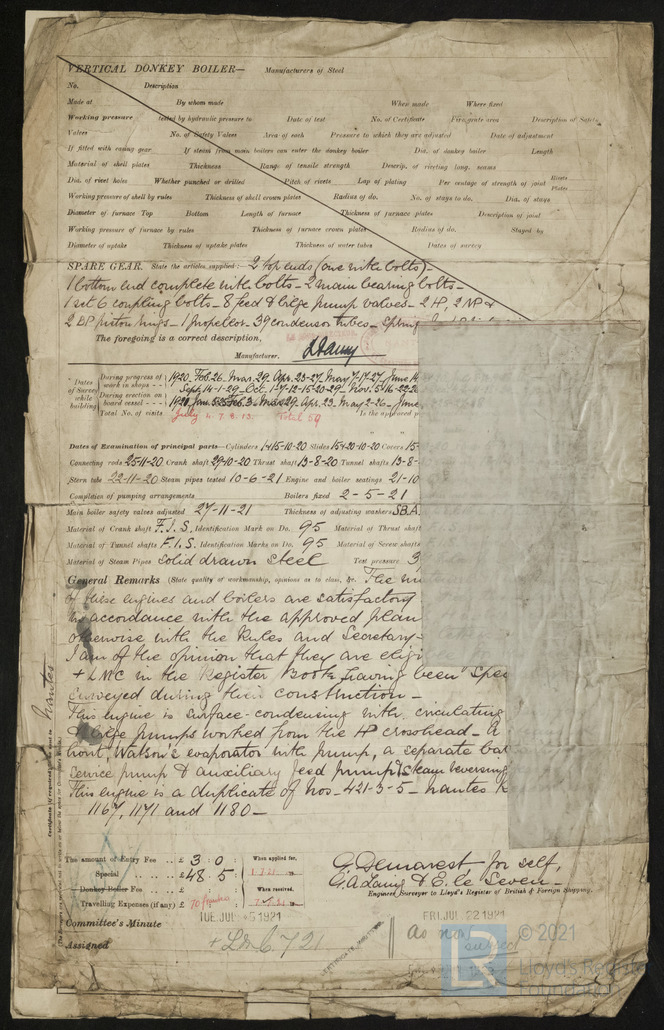 VERTICAL DONKEY BOILER— Manufacturers of Steel
No. Description
Made at By whom made When made Where fixed
Working pressure tested by hydraulic pressure to Date of test No. of Certificate Fire grate area Description of Safety
Valves No. of Safety Valves Area of each Pressure to which they are adjusted Date of adjustment
If fitted with easing gear If steam from main boilers can enter the donkey boiler Dia. of donkey boiler Length
Material of shell plates Thickness Range of tensile strength Descrip. of riveting long. seams
Dia. of rivet holes Whether punched or drilled Pitch of rivets Lap of plating Per centage of strength of joint Rivets Plates
Working pressure of shell by rules Thickness of shell crown plates Radius of do. No. of stays to do. Dia. of stays
Diameter of furnace Top Bottom Length of furnace Thickness of furnace plates Description of joint
Working pressure of furnace by rules Thickness of furnace crown plates Radius of do. Stayed by
Diameter of uptake Thickness of uptake plates Thickness of water tubes Dates of survey
SPARE GEAR. State the articles supplied:— 2 top ends (one with bolts)—
1 bottom end complete with bolts — 2 main bearing bolts —
1 set 6 coupling bolts — 8 feed & bilge pump valves — 2 HP, 2 MP &
2 LP piston rings — 1 propellor — 39 condenser tubes — spring
The foregoing is a correct description,
Manufacturer.
Dates of Survey while building
During progress of work in shops - - 1920. Feb. 26. Mar. 29. Apr. 23-27. May 7-17-27. June 14
Sept. 14-1-29. Oct. 1-7-12-15-20-29. Nov. 5-16-22-2
During erection on board vessel - - -
Total No. of visits July 4. 7. 8. 13. Total 50 Is the approved p
Dates of Examination of principal parts—Cylinders 1+15-10-20 Slides 15+20-10-20 Covers 15-
Connecting rods 25-11-20 Crank shaft 29-10-20 Thrust shaft 13-8-20 Tunnel shafts 13-8-
Stern tube 22-11-20 Steam pipes tested 10-6-21 Engine and boiler seatings 21-10
Completion of pumping arrangements Boilers fixed 2-5-21
Main boiler safety valves adjusted 27-11-21 Thickness of adjusting washers SB.A
Material of Crank shaft F.I.S. Identification Mark on Do. 95 Material of Thrust shaft
Material of Tunnel shafts F.I.S. Identification Marks on Do. 95 Material of Screw shafts
Material of Steam Pipes solid drawn steel Test pressure 3
General Remarks (State quality of workmanship, opinions as to class, &c. The
of these engines and boilers are satisfactory
in accordance with the approved plan
otherwise with the Rules and Secretary-
I am of the opinion that they are eligi
+ LMC in the Register Book, having been Spec
surveyed during their construction —
This engine is surface-condensing with circulating
& bilge pumps worked from the HP crosshead — A
Watson's evaporator with pump, a separate bal
service pump & auxiliary feed pump. Steam reversing
This engine is a duplicate of nos — 421-3-5 — nantes R
1167, 1171 and 1180 —
Certificate (if required) to be sent to Nantes
The amount of Entry Fee .. £ 3 : 0 : When applied for,
Special .. .. £ 48 : 5 :
Donkey Boiler Fee .. .. £ : : When received,
Travelling Expenses (if any) £
G. Demarest for self,
G.A. Laing & E. le Seven —
Engineer Surveyor to Lloyd's Register of British & Foreign Shipping.
Committee's Minute TUE. JUL. 5 1921 FRI. JUL. 22 1921
Assigned + LMC. 7 21 As now
© 2021
LR Lloyd's Register Foundation